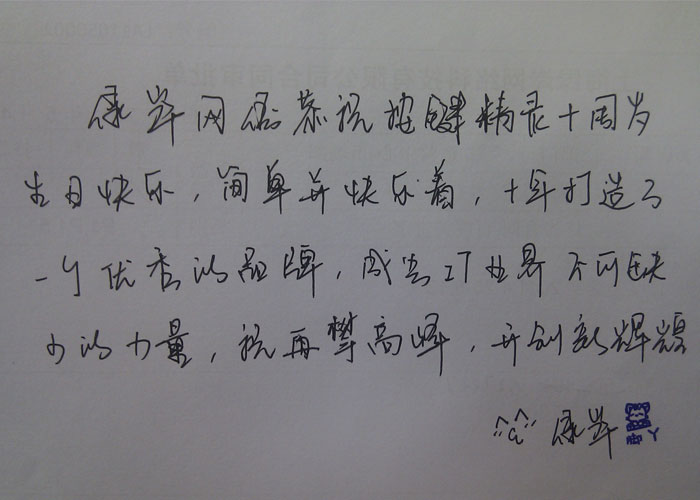 绿岸网络恭祝按键精灵十周岁
生日快乐，简单并快乐着，十年打造了
一个优秀的品牌，成为IT世界不可缺
少的力量，祝再攀高峰，开创新辉煌
绿岸 脚丫